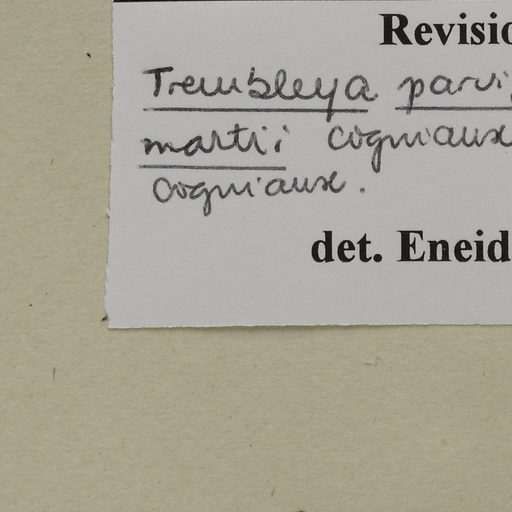 Revisio
Trembleya parvi
martii Cogniaux
Cogniaux.
det. Eneid